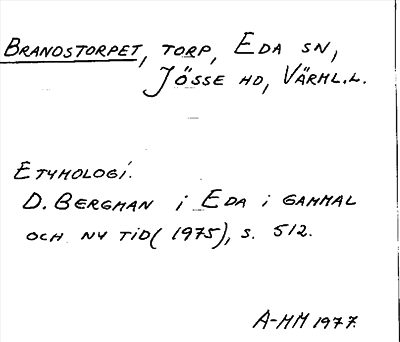 BRANDSTORPET, TORP, EDA SN,
JÖSSE HD, VÄRML.L.
ETYMOLOGI.
D. BERGMAN i EDA i GAMMAL
OCH NY TID (1975), S. 512.
A-MM 1977.